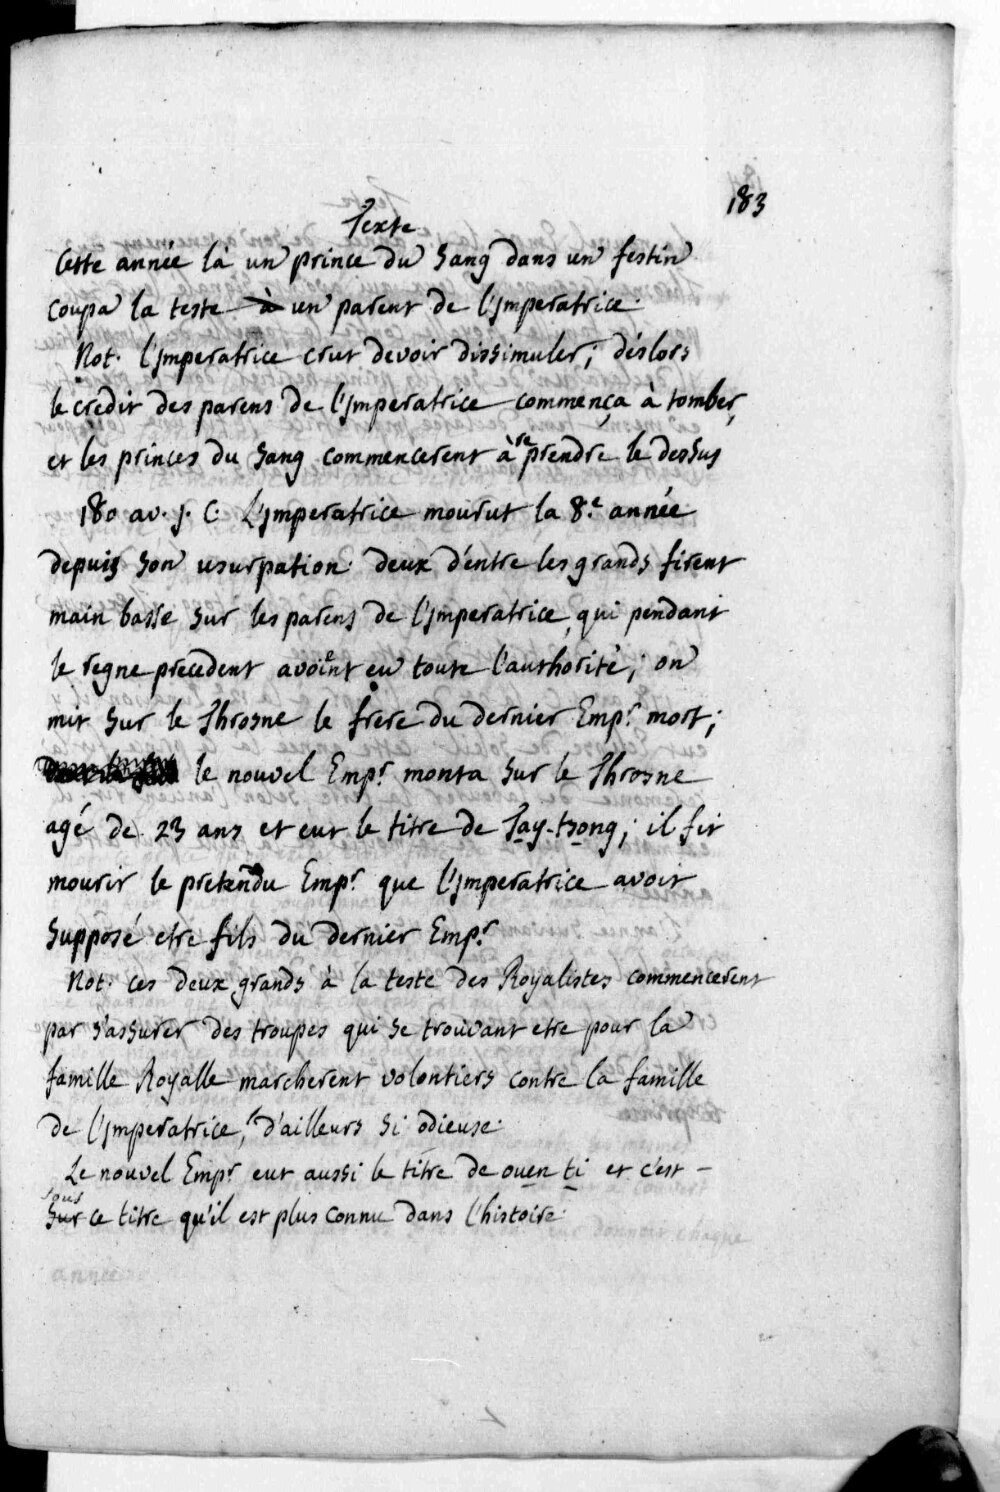 183
Texte
Cette année là un prince du Sang dans un festin
coupa la teste à un parent de l'Imperatrice.
Not. l'Imperatrice crut devoir dissimuler; déslors
le credit des parens de l'Imperatrice commença à tomber,
et les princes du Sang commencerent à reprendre le dessus
180 av. J. C. L'Imperatrice mourut la 8.e année
depuis son usurpation. deux d'entre les grands firent
main basse sur les parens de l'Imperatrice, qui pendant
le regne precedent avoient eu toute l'authorité; on
mit sur le Throsne le frere du dernier Emp.r mort;
le nouvel Emp.r monta sur le Throsne
agé de 23 ans et eut le titre de Tay-tsong; il fit
mourir le pretendu Emp.r que l'Imperatrice avoit
supposé etre fils du dernier Emp.r
Not. ces deux grands à la teste des Royalistes commencerent
par s'assurer des troupes qui se trouvant etre pour la
famille Royalle marcherent volontiers contre la famille
de l'Imperatrice, d'ailleurs si odieuse.
Le nouvel Emp.r eut aussi le titre de ouen ti et c'est –
sous
sur ce titre qu'il est plus connu dans l'histoire.